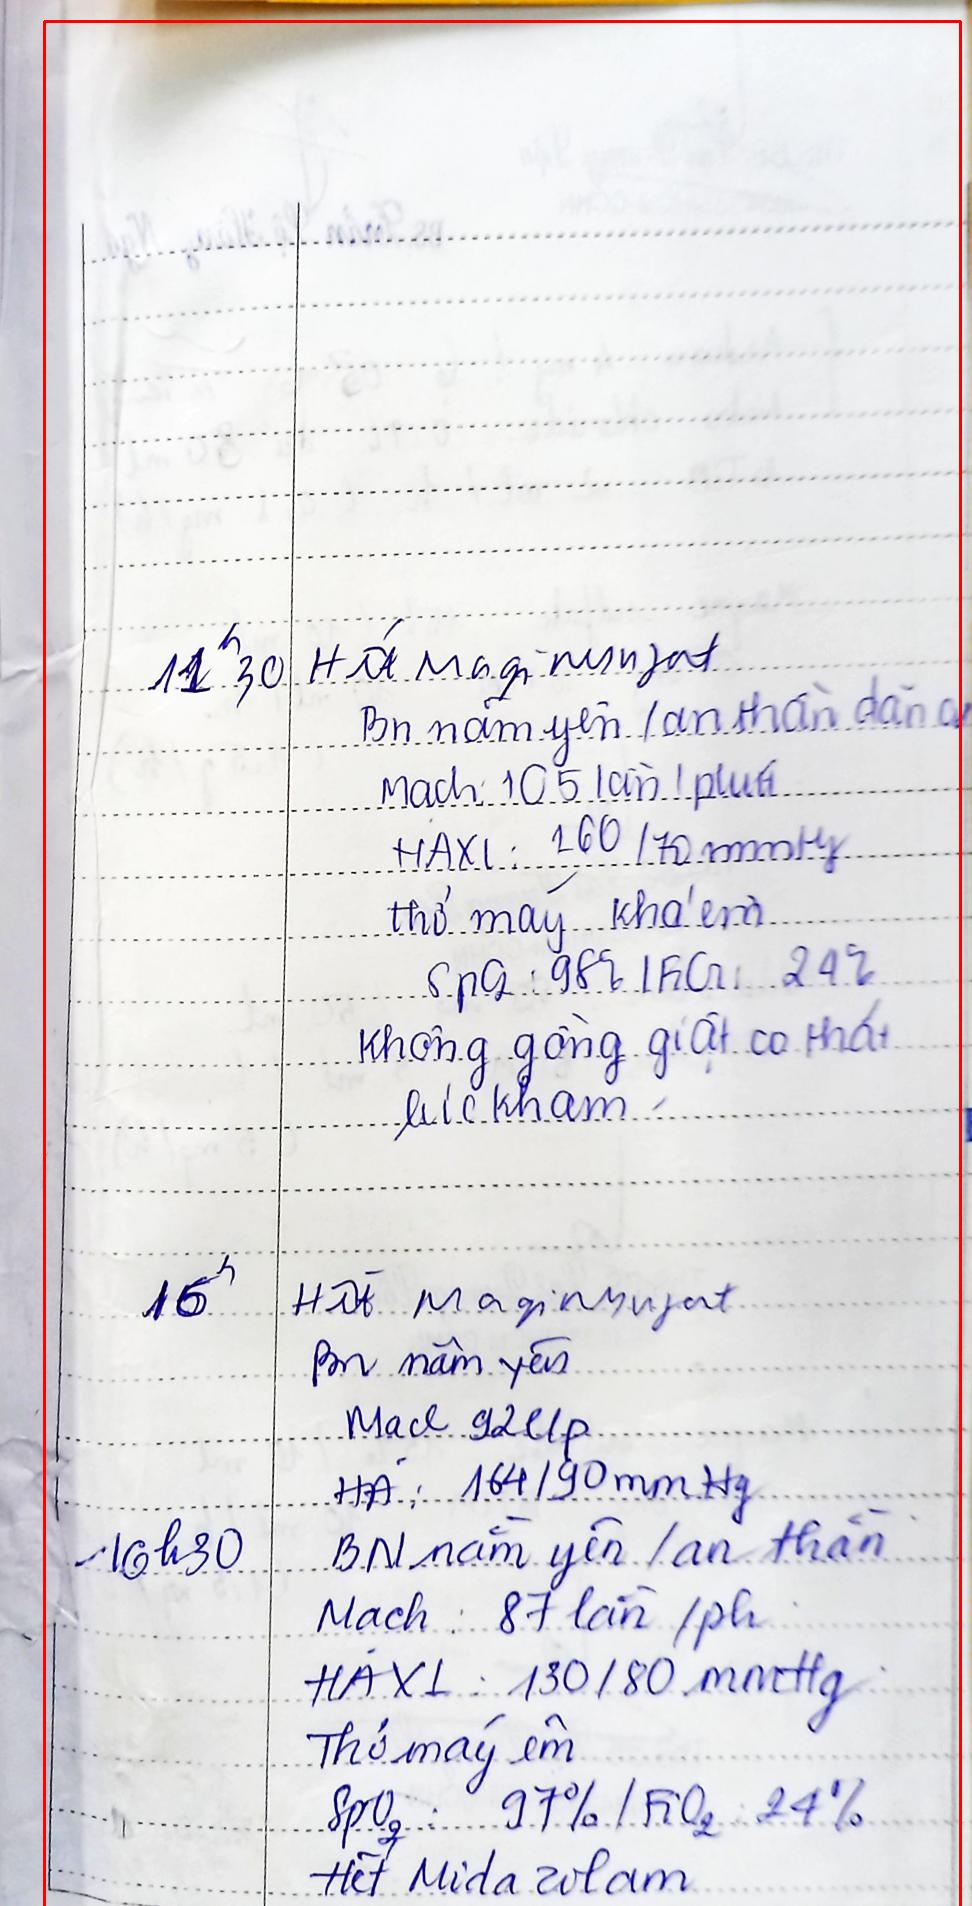 11h30 Hết Magin
Bn nằm yên / an thần dãn
Mạch: 105 lần / phút
HAXL: 160 / 70 mmHg
thở máy khá êm
SpO2: 98% / FiO2: 24%
Không gồng giật co thắt
lúc khám
16h Hết Magin
Bn nằm yên
Mạch 92 l/p
HA: 164/90 mmHg
16h30 BN nằm yên / an thần
Mạch: 87 lần /ph
HAXL: 130/80 mmHg
Thở máy êm
SpO2: 97% / FiO2: 24%
Hết Midazolam